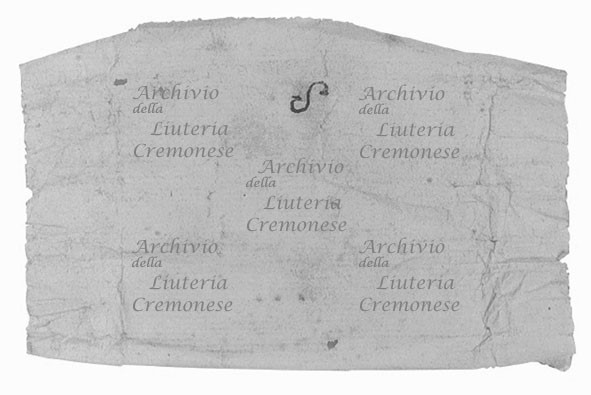 Archivio
della
Liuteria
Cremonese
Archivio
della
Liuteria
Cremonese
Archivio
della
Liuteria
Cremonese
Archivio
della
Liuteria
Cremonese
Archivio
della
Liuteria
Cremonese